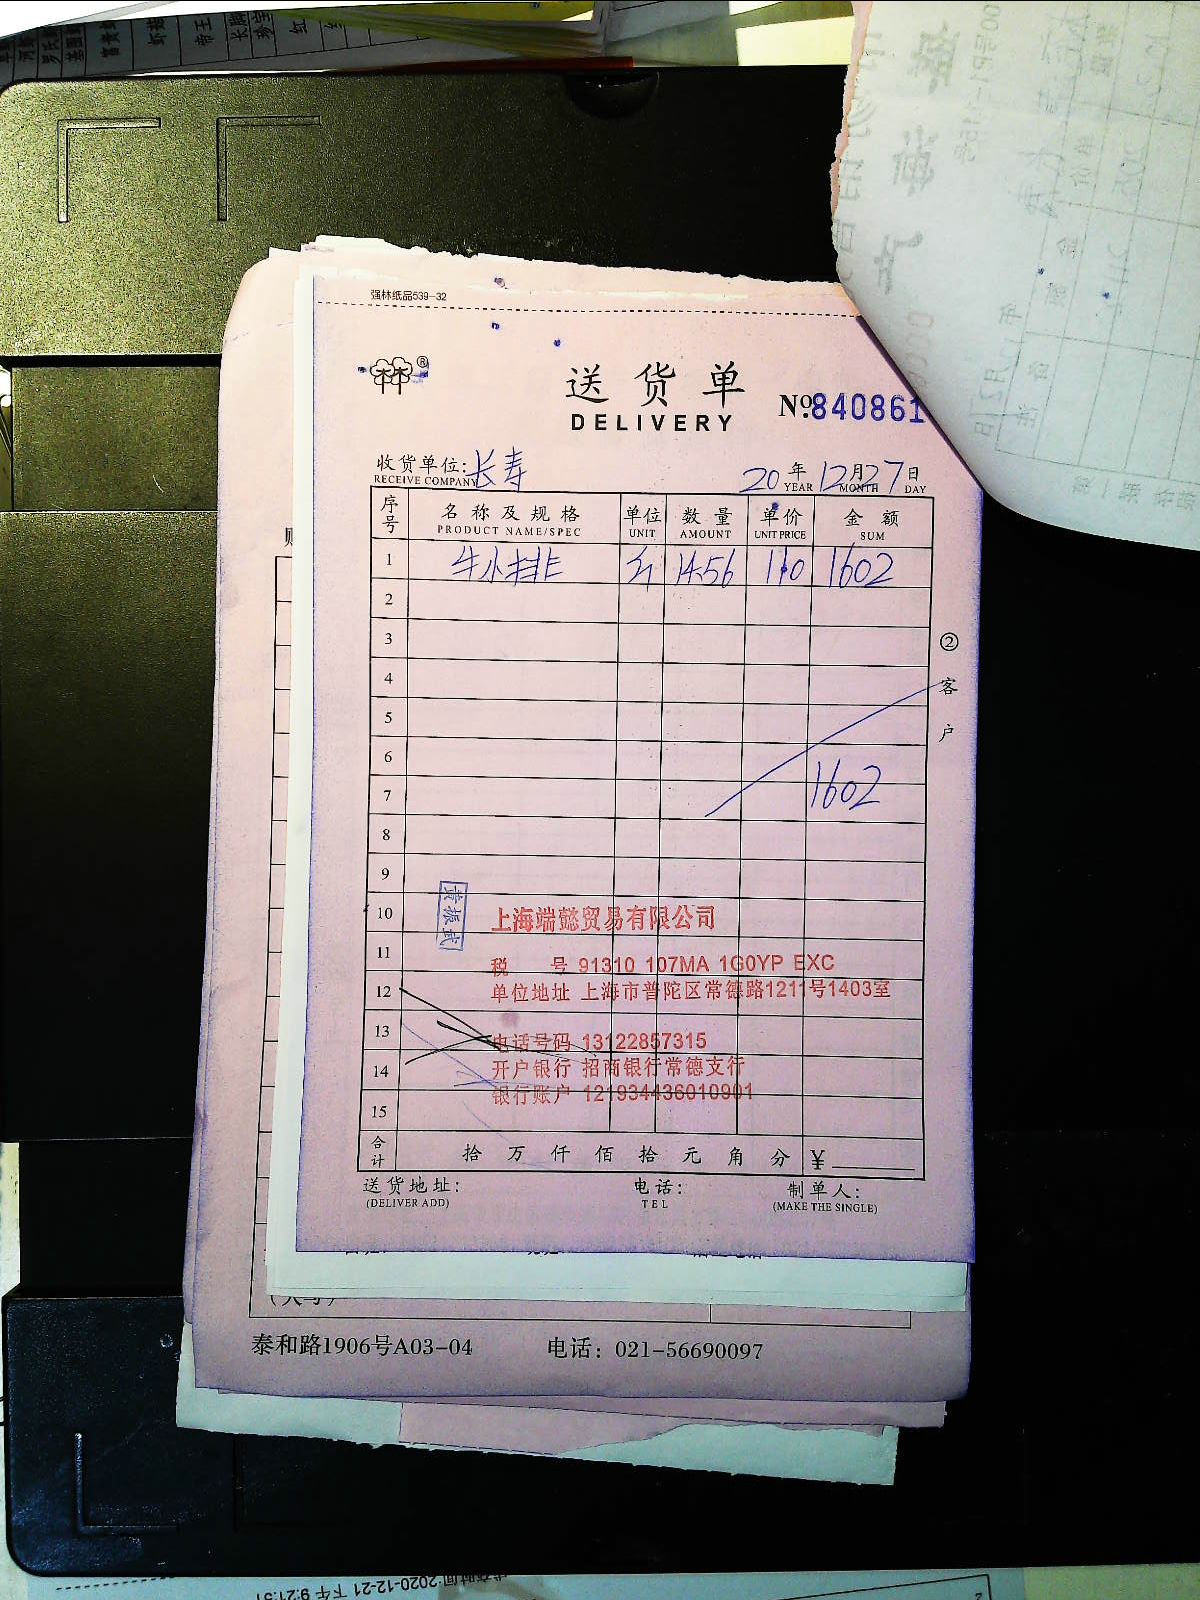 强林纸品539-32
送货单
DELIVERY
№840861
收货单位: 长寿 20 年 12 月 27 日
RECEIVE COMPANY YEAR MONTH DAY
序号 名称及规格 单位 数量 单价 金额
PRODUCT NAME/SPEC UNIT AMOUNT UNIT PRICE SUM
1 牛小排 斤 14.56 110 1602
2
3
4
5
6
7 1602
8
9
10 上海端懿贸易有限公司
11 税 号 91310 107MA 1G0YP EXC
12 单位地址 上海市普陀区常德路1211号1403室
13 电话号码 13122857315
14 开户银行 招商银行常德支行
银行账户 121934436010901
15
合计 拾 万 仟 佰 拾 元 角 分 ¥
送货地址: 电话: 制单人:
(DELIVER ADD) TEL (MAKE THE SINGLE)
②客户
黄振武
泰和路1906号A03-04 电话：021-56690097
2020-12-21 下午 9:21:51